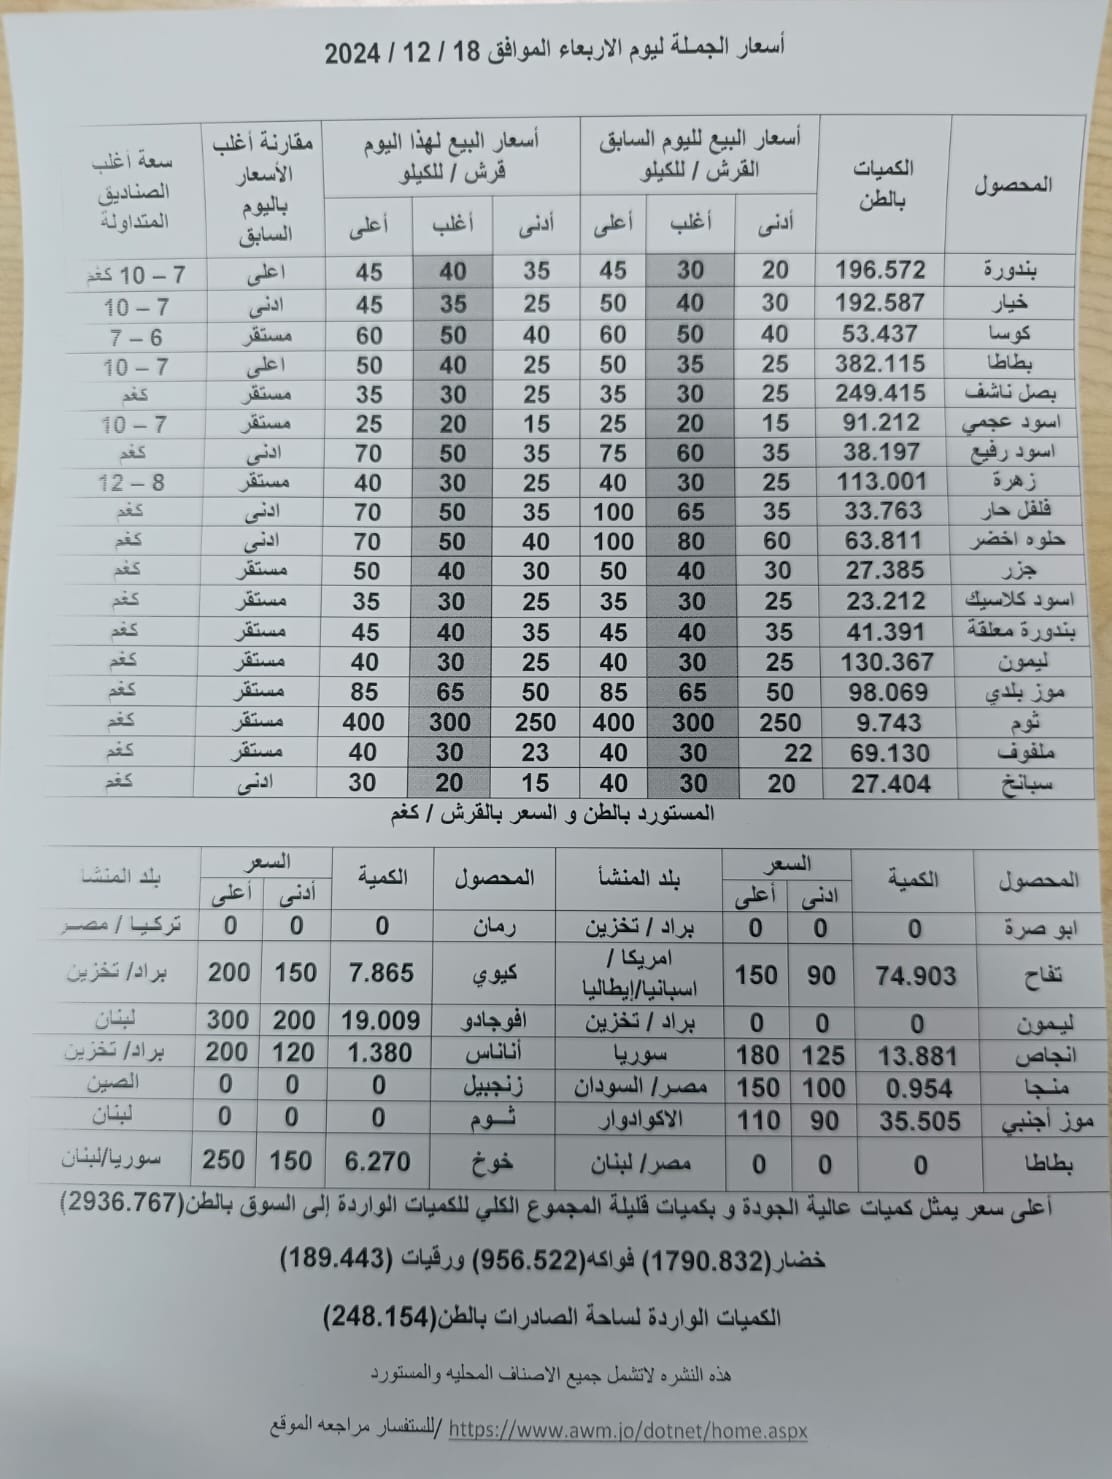 أسعار الجملة ليوم الاربعاء الموافق 18 / 12 / 2024
المحصول | الكميات بالطن | أسعار البيع لليوم السابق القرش / للكيلو | أسعار البيع لهذا اليوم قرش / للكيلو | مقارنة أغلب الأسعار باليوم السابق | سعة أغلب الصناديق المتداولة
أدنى | أغلب | أعلى | أدنى | أغلب | أعلى
بندورة | 196.572 | 20 | 30 | 45 | 35 | 40 | 45 | اعلى | 7 – 10 كغم
خيار | 192.587 | 30 | 40 | 50 | 25 | 35 | 45 | ادنى | 7 – 10
كوسا | 53.437 | 40 | 50 | 60 | 40 | 50 | 60 | مستقر | 6 – 7
بطاطا | 382.115 | 25 | 35 | 50 | 25 | 40 | 50 | اعلى | 7 – 10
بصل ناشف | 249.415 | 25 | 30 | 35 | 25 | 30 | 35 | مستقر | كغم
اسود عجمي | 91.212 | 15 | 20 | 25 | 15 | 20 | 25 | مستقر | 7 – 10
اسود رفيع | 38.197 | 35 | 60 | 75 | 35 | 50 | 70 | ادنى | كغم
زهرة | 113.001 | 25 | 30 | 40 | 25 | 30 | 40 | مستقر | 8 – 12
فلفل حار | 33.763 | 35 | 65 | 100 | 35 | 50 | 70 | ادنى | كغم
حلوه اخضر | 63.811 | 60 | 80 | 100 | 40 | 50 | 70 | ادنى | كغم
جزر | 27.385 | 30 | 40 | 50 | 30 | 40 | 50 | مستقر | كغم
اسود كلاسيك | 23.212 | 25 | 30 | 35 | 25 | 30 | 35 | مستقر | كغم
بندورة معلقة | 41.391 | 35 | 40 | 45 | 35 | 40 | 45 | مستقر | كغم
ليمون | 130.367 | 25 | 30 | 40 | 25 | 30 | 40 | مستقر | كغم
موز بلدي | 98.069 | 50 | 65 | 85 | 50 | 65 | 85 | مستقر | كغم
ثوم | 9.743 | 250 | 300 | 400 | 250 | 300 | 400 | مستقر | كغم
ملفوف | 69.130 | 22 | 30 | 40 | 23 | 30 | 40 | مستقر | كغم
سبانخ | 27.404 | 20 | 30 | 40 | 15 | 20 | 30 | ادنى | كغم
المستورد بالطن و السعر بالقرش / كغم
المحصول | الكمية | السعر | بلد المنشأ | المحصول | الكمية | السعر | بلد المنشأ
ادنى | أعلى | أدنى | أعلى
ابو صرة | 0 | 0 | 0 | براد / تخزين | رمان | 0 | 0 | 0 | تركيا / مصر
تفاح | 74.903 | 90 | 150 | امريكا / اسبانيا/إيطاليا | كيوي | 7.865 | 150 | 200 | براد/ تخزين
ليمون | 0 | 0 | 0 | براد / تخزين | افوجادو | 19.009 | 200 | 300 | لبنان
انجاص | 13.881 | 125 | 180 | سوريا | أناناس | 1.380 | 120 | 200 | براد/ تخزين
منجا | 0.954 | 100 | 150 | مصر/ السودان | زنجبيل | 0 | 0 | 0 | الصين
موز أجنبي | 35.505 | 90 | 110 | الاكوادوار | ثـوم | 0 | 0 | 0 | لبنان
بطاطا | 0 | 0 | 0 | مصر/ لبنان | خوخ | 6.270 | 150 | 250 | سوريا/لبنان
أعلى سعر يمثل كميات عالية الجودة و بكميات قليلة المجموع الكلي للكميات الواردة إلى السوق بالطن(2936.767)
خضار(1790.832) فواكه(956.522) ورقيات (189.443)
الكميات الواردة لساحة الصادرات بالطن(248.154)
هذه النشره لاتشمل جميع الاصناف المحليه والمستورد
للستفسار مراجعه الموقع/ https://www.awm.jo/dotnet/home.aspx